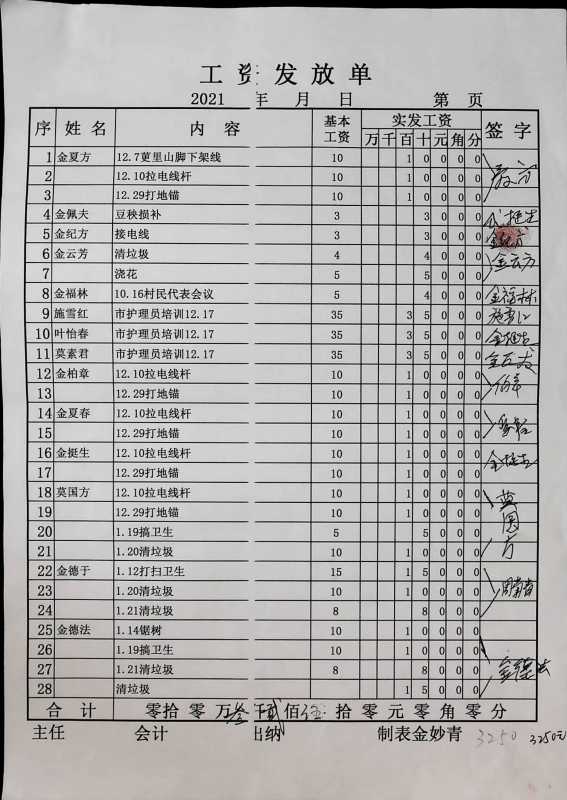 工资发放单
2021 年 月 日 第 页
序 姓名 内容 基本工资 实发工资 签字
万 千 百 十 元 角 分
1 金夏方 12.7萛里山脚下架线 10 1 0 0 0 0
2 12.10拉电线杆 10 1 0 0 0 0
3 12.29打地锚 10 1 0 0 0 0
4 金佩夫 豆秧损补 3 3 0 0 0
5 金纪方 接电线 3 3 0 0 0 金纪方
6 金云芳 清垃圾 4 4 0 0 0 金云方
7 浇花 5 5 0 0 0
8 金福林 10.16村民代表会议 5 4 0 0 0 金福林
9 施雪红 市护理员培训12.17 35 3 5 0 0 0
10 叶怡春 市护理员培训12.17 35 3 5 0 0 0
11 莫素君 市护理员培训12.17 35 3 5 0 0 0
12 金柏章 12.10拉电线杆 10 1 0 0 0 0
13 12.29打地锚 10 1 0 0 0 0
14 金夏春 12.10拉电线杆 10 1 0 0 0 0
15 12.29打地锚 10 1 0 0 0 0
16 金挺生 12.10拉电线杆 10 1 0 0 0 0 金挺生
17 12.29打地锚 10 1 0 0 0 0
18 莫国方 12.10拉电线杆 10 1 0 0 0 0
19 12.29打地锚 10 1 0 0 0 0
20 1.19搞卫生 5 5 0 0 0
21 1.20清垃圾 10 1 0 0 0 0
22 金德于 1.12打扫卫生 15 1 5 0 0 0
23 1.20清垃圾 10 1 0 0 0 0
24 1.21清垃圾 8 8 0 0 0
25 金德法 1.14锯树 10 1 0 0 0 0
26 1.19搞卫生 10 1 0 0 0 0
27 1.21清垃圾 8 8 0 0 0 金德法
28 清垃圾 1 5 0 0 0
合计 零拾零万叁仟贰佰伍拾零元零角零分
主任 会计 出纳 制表金妙青 3250 3250元